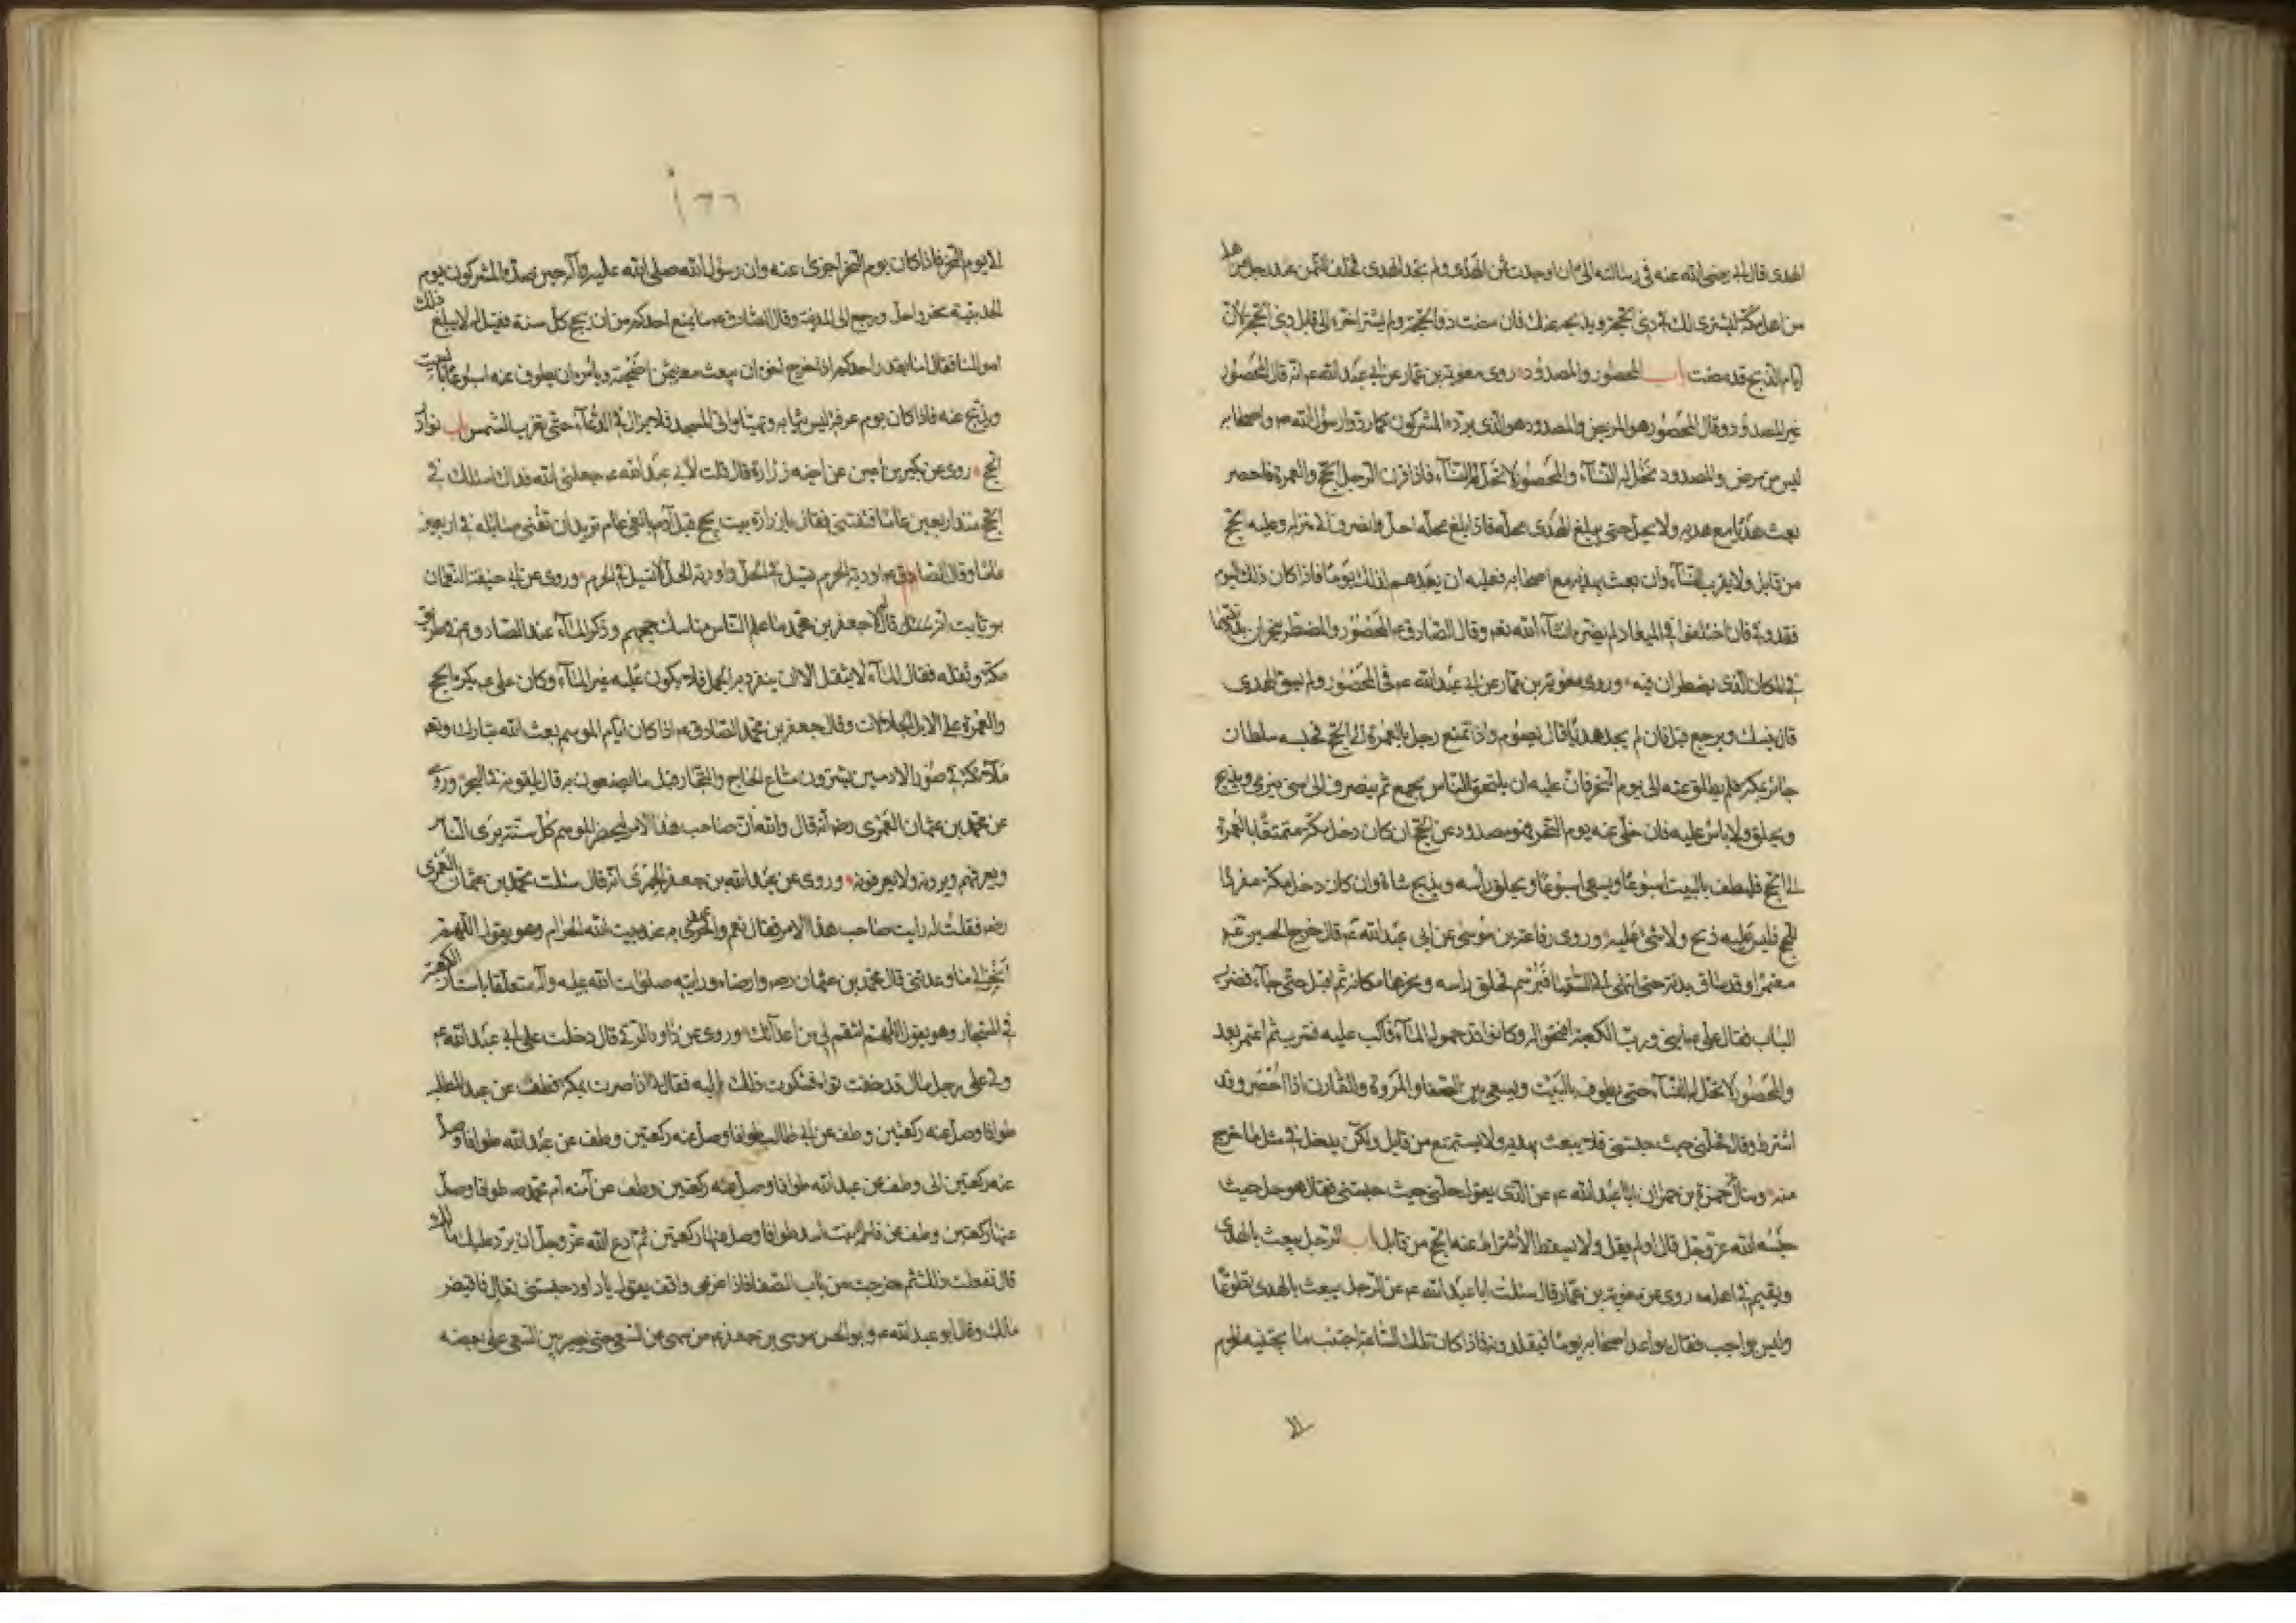 الهدى قال ابى رضى الله عنه فى رسالته الىّ ان وجدت ثمن الهدى ولم تجد الهدى فخلف الثمن عند رجل من
من اهل مكة ليشترى لك فى ذى الحجة ويذبحه عنك فان مضت ذو الحجة ولم يشتر اخره الى قابل ذى الحجة لان
ايام الذبح قد مضت باب المحصور والمصدود روى معوية بن عمار عن ابى عبد الله ع انه قال المحصور
غير المصدود وقال المحصور هو المريض والمصدود هو الذى يرده المشركون كما ردوا رسول الله ص واصحابه
ليس من مرض والمصدود تحل له النساء والمحصور لا تحل له النساء فاذا قرن الرجل الحج والعمرة فاحصر
بعث هديا مع هديه ولا يحل حتى يبلغ الهدى محله فاذا بلغ محله احل وانصرف الى منزله وعليه الحج
من قابل ولا يقرب النساء وان بعث بهديه مع اصحابه فعليه ان يعدهم لذلك يوما فاذا كان ذلك اليوم
فقد وفى فان اختلفوا فى الميعاد لم يضره انشاء الله تعه وقال الصادق ع المحصور والمضطر ينحران بدنتهما
فى المكان الذى يضطران فيه وروى معوية بن عمار عن ابى عبد الله ع فى المحصور ولم يسق الهدى
قال ينسك ويرجع قيل فان لم يجد هديا قال يصوم واذا تمتع رجل بالعمرة الى الحج فحبسه سلطان
جائر بمكة فلم يطلق عنه الى يوم النحر فان عليه ان يلتحق الناس بجمع ثم ينصرف الى منى فيرمى ويذبح
ويحلق ولا باس عليه فان خلى عنه يوم النحر فهو مصدود عن الحج ان كان دخل مكة متمتعا بالعمرة
الى الحج فليطف بالبيت اسبوعا ويسعى اسبوعا ويحلق راسه ويذبح شاة وان كان دخل مكة مفردا
للحج فليس عليه ذبح ولا شئ عليه وروى رفاعة بن موسى عن ابى عبد الله ع قال خرج الحسين ع
معتمرا وقد ساق بدنة حتى انتهى الى السقيا فبرسم فحلق راسه ونحرها مكانه ثم اقبل حتى جاء فضرب
الباب فقال على ع ابنى ورب الكعبة افتحوا له وكانوا قد حموا له الماء فاكب عليه فشرب ثم اعتمر بعد
والمحصور لا تحل له النساء حتى يطوف بالبيت ويسعى بين الصفا والمروة والقارن اذا احصر وقد
اشترط وقال فحلنى حيث حبستنى فلا يبعث بهديه ولا يستمتع من قابل ولكن يدخل فى مثل ما خرج
منه وسال حمزة بن حمران ابا عبد الله ع عن الذى يقول حلنى حيث حبستنى فقال هو حل حيث
حبسه الله عز وجل قال او لم يقل ولا يسقط الاشتراط عنه الحج من قابل باب الرجل يبعث بالهدى
ويقيم فى اهله روى عن معوية بن عمار قال سئلت ابا عبد الله ع عن الرجل يبعث بالهدى تطوعا
وليس بواجب فقال يواعد اصحابه يوما فيقلدونه فاذا كان تلك الساعة اجتنب ما يجتنبه المحرم
الى
١٢٢
الى يوم النحر فاذا كان يوم النحر اجزى عنه وان رسول الله صلى الله عليه وآله حين صده المشركون يوم
الحديبية نحر واحل ورجع الى المدينة وقال الصادق ع ما يمنع احدكم من ان يحج كل سنة فقيل له لا يبلغ ذلك
اموالنا فقال اما يقدر احدكم اذا خرج اخوه ان يبعث معه بثمن اضحية ويامره ان يطوف عنه اسبوعا بالبيت
ويذبح عنه فاذا كان يوم عرفة لبس ثيابه وتهيئا واتى المسجد فلا يزال فى الدعاء حتى تغرب الشمس باب نوادر
الحج روى عن بكير بن اعين عن اخيه زرارة قال قلت لابى عبد الله ع جعلنى الله فداك اسئلك فى
الحج منذ اربعين عاما فتفتينى فقال يا زرارة بيت يحج قبل آدم بالفى عام تريد ان تفنى مسائله فى اربعين
عاما وقال الصادق ع اودية الحرم تسيل فى الحل واودية الحل لا تسيل فى الحرم وروى عن ابى حنيفة النعمان
بن ثابت انه قال لولا جعفر بن محمد ما علم الناس مناسك حجهم وذكر الماء عند الصادق ع فى طريق
مكة وثقله فقال الماء لا يثقل الا ان ينفرد به الجمل فلا يكون عليه غير الماء وكان على ع يكره الحج
والعمرة على الابل الجلالات وقال جعفر بن محمد الصادق ع اذا كان ايام الموسم بعث الله تبارك وتعه
ملائكة فى صور الادميين يشترون متاع الحاج والتجار قيل ما يصنعون به قال يلقونه فى البحر وروى
عن محمد بن عثمان العمرى رضه انه قال والله ان صاحب هذا الامر ليحضر الموسم كل سنة يرى الناس
ويعرفهم ويرونه ولا يعرفونه وروى عن عبد الله بن جعفر الحميرى انه قال سئلت محمد بن عثمان العمرى
رضه فقلت له رايت صاحب هذا الامر فقال نعم واخر عهدى به عند بيت الله الحرام وهو يقول اللهم
انجز لى ما وعدتنى قال محمد بن عثمان رضه وارضاه ورايته صلوات الله عليه وآله متعلقا باستار الكعبة
فى المستجار وهو يقول اللهم انتقم لى من اعدائك وروى عن داود الرقى قال دخلت على ابى عبد الله ع
ولى على رجل مال قد خفت تواه فشكوت ذلك اليه فقال لى اذا صرت بمكة فطف عن عبد المطلب
طوافا وصل عنه ركعتين وطف عن ابى طالب طوافا وصل عنه ركعتين وطف عن عبد الله طوافا وصل
عنه ركعتين وطف عن عبد الله طوافا وصل عنه ركعتين وطف عن آمنه ام محمد ص طوافا وصل
عنها ركعتين وطف عن فاطمة بنت اسد طوافا وصل عنها ركعتين ثم ادع الله عز وجل ان يرد عليك مالك
قال ففعلت ذلك ثم خرجت من باب الصفا فاذا غريمى واقف يقول يا داود حبستنى تعال فاقبض
مالك وقال ابو عبد الله ع وابو الحسن موسى بن جعفر ع من سهى عن السعى حتى يصير من السعى على بعضه